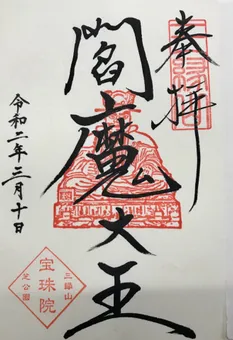 奉拝
閻魔大王
令和二年三月十日
三縁山
宝珠院
芝公園